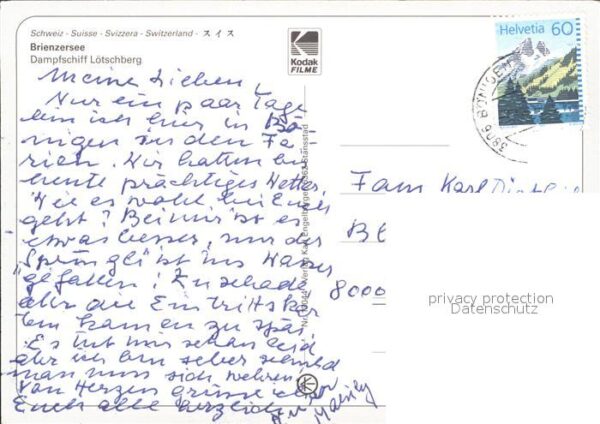 Schweiz · Suisse · Svizzera · Switzerland · スイス
Brienzersee
Dampfschiff Lötschberg
Kodak
FILME
Helvetia 60
3806 BÖNIGEN
Meine Lieben!
Nur ein paar Tage
bin ich hier in Bö-
nigen in den Fe-
rien. Wir hatten bis
heute prächtiges Wetter.
Wie es wohl bei Euch
geht? Bei mir ist es
etwas besser, nur der
"Sprüngli" ist ins Wasser
gefallen! Zu schade
aber die Eintrittskar
ten kamen zu spät.
Es tut mir schon leid
aber ich bin selber schuld
man muss sich wehren!
Von Herzen grüsse ich
Euch alle herzlich
Fam. Karl
8000
Verlag Karl Engelberger, 6362 Stansstad
privacy protection
Datenschutz